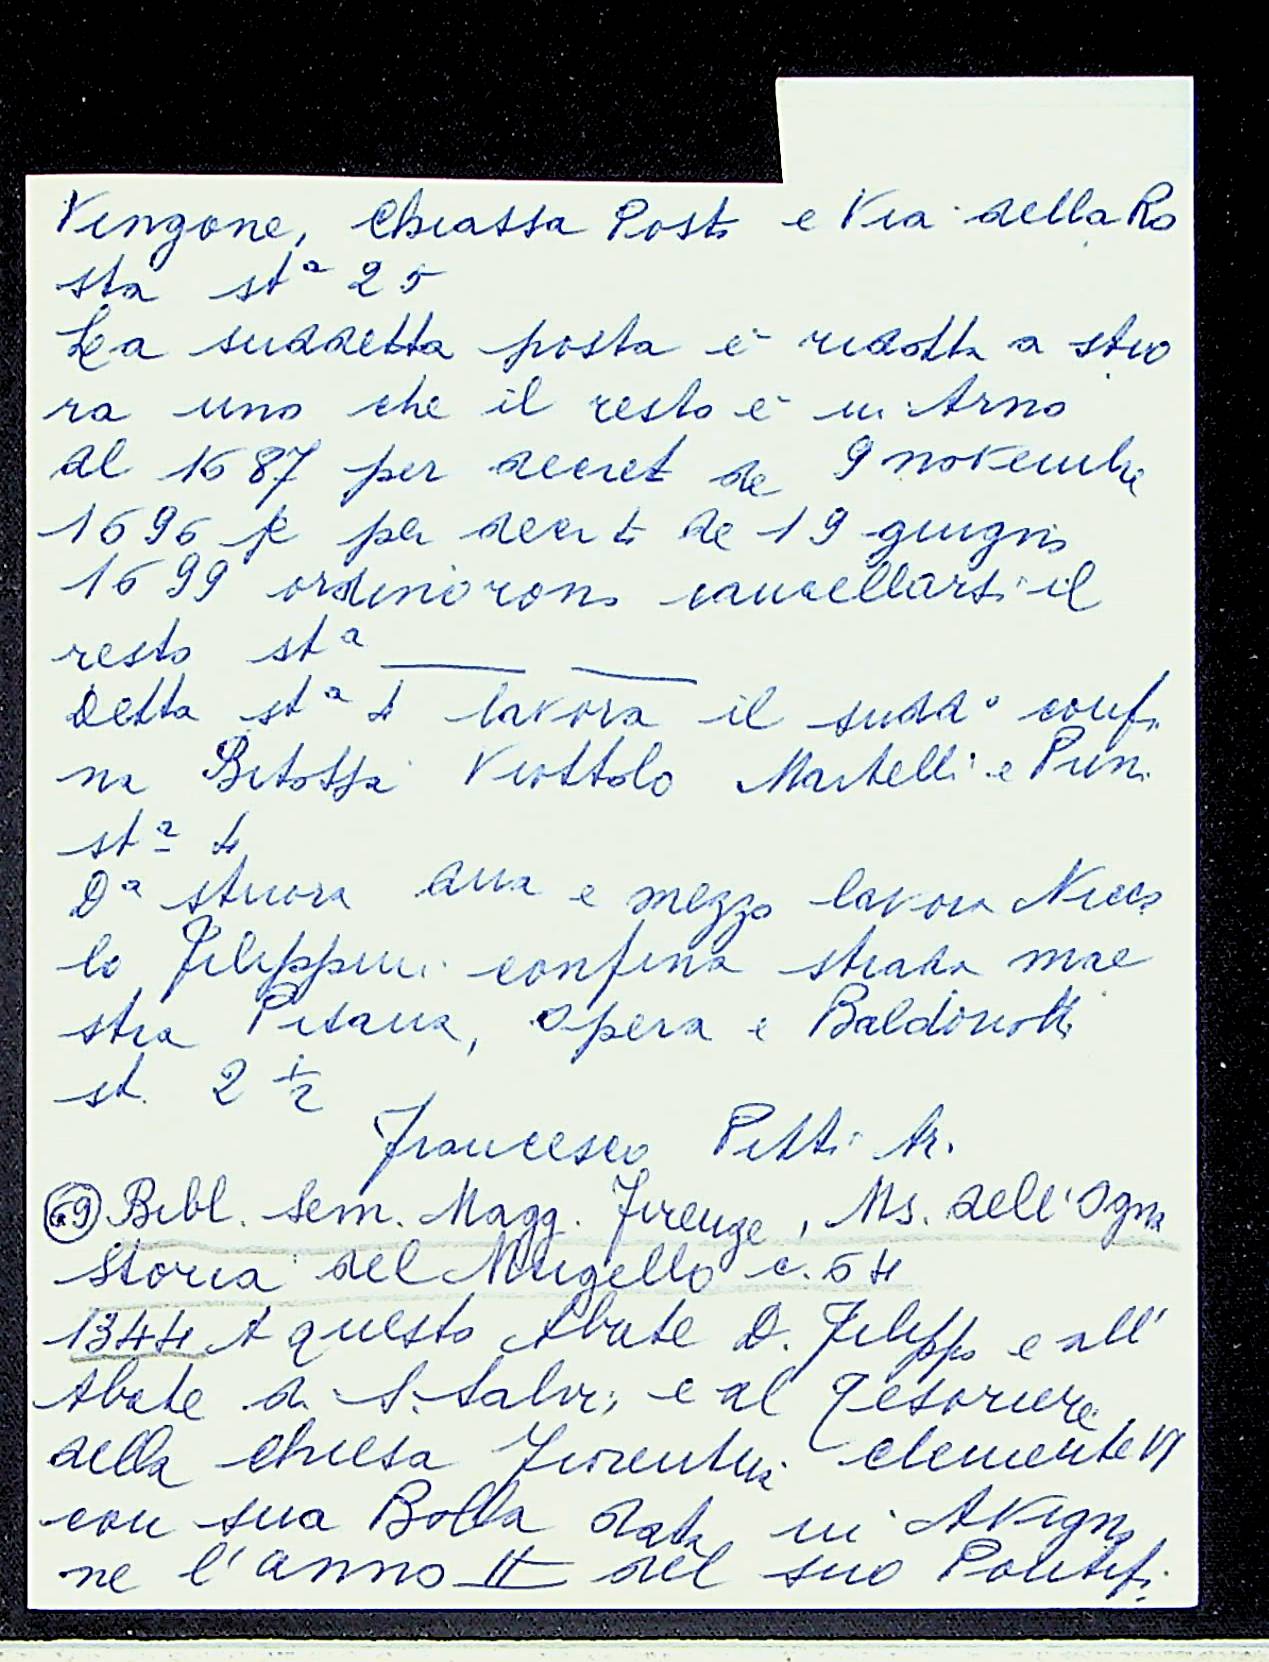 Vingone, Chiassa Posti e Via della Ro
sta st.ª 25
La suddetta posta è ridotta a stio
ra uno che il resto è in Arno
al 1687 per decret de 9 novembre
1696 e per decrt de 19 giugno
1699 ordinorono cancellarsi il
resto st.ª ___ ___
Detta st.ª 4 lavora il sudd.º confi
na Bitossi Viottolo Martelli e Pini
st.ª 4
D.ª stiora dua e mezzo lavora Nicco
lo Filippini confina strada mae
stra Pisana, Opera e Baldinotti
st. 2 ½
Francesco Pitti Ar.
69 Bibl. Sem. Magg. Firenze, Ms. dell'Ogna
Storia del Mugello c. 54
1344 A questo Abate D. Filippo e all'
Abate di S. Salvi, e al Tesoriere
della Chiesa Fiorentina Clemente VI
con sua Bolla data in Avigno
ne l'anno II del suo Pontifi